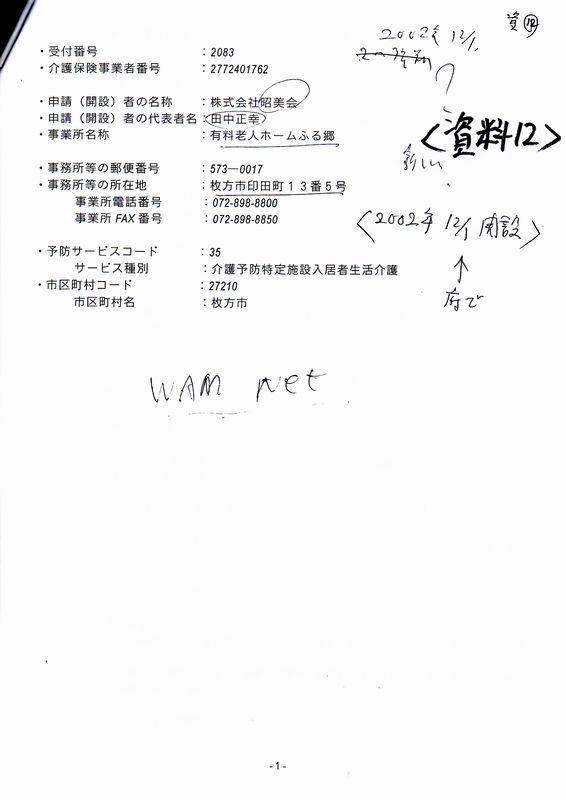 資⑫
2002年 12/1
・受付番号 : 2083
・介護保険事業者番号 : 2772401762
・申請（開設）者の名称 : 株式会社昭美会
・申請（開設）者の代表者名 : 田中正幸
・事業所名称 : 有料老人ホームふる郷
<資料12>
新しい
・事務所等の郵便番号 : 573―0017
・事務所等の所在地 : 枚方市印田町１３番５号
事業所電話番号 : 072-898-8800
事業所 FAX 番号 : 072-898-8850
<2002年 12/1 開設>
府で
・予防サービスコード : 35
サービス種別 : 介護予防特定施設入居者生活介護
・市区町村コード : 27210
市区町村名 : 枚方市
WAM Net
- 1 -